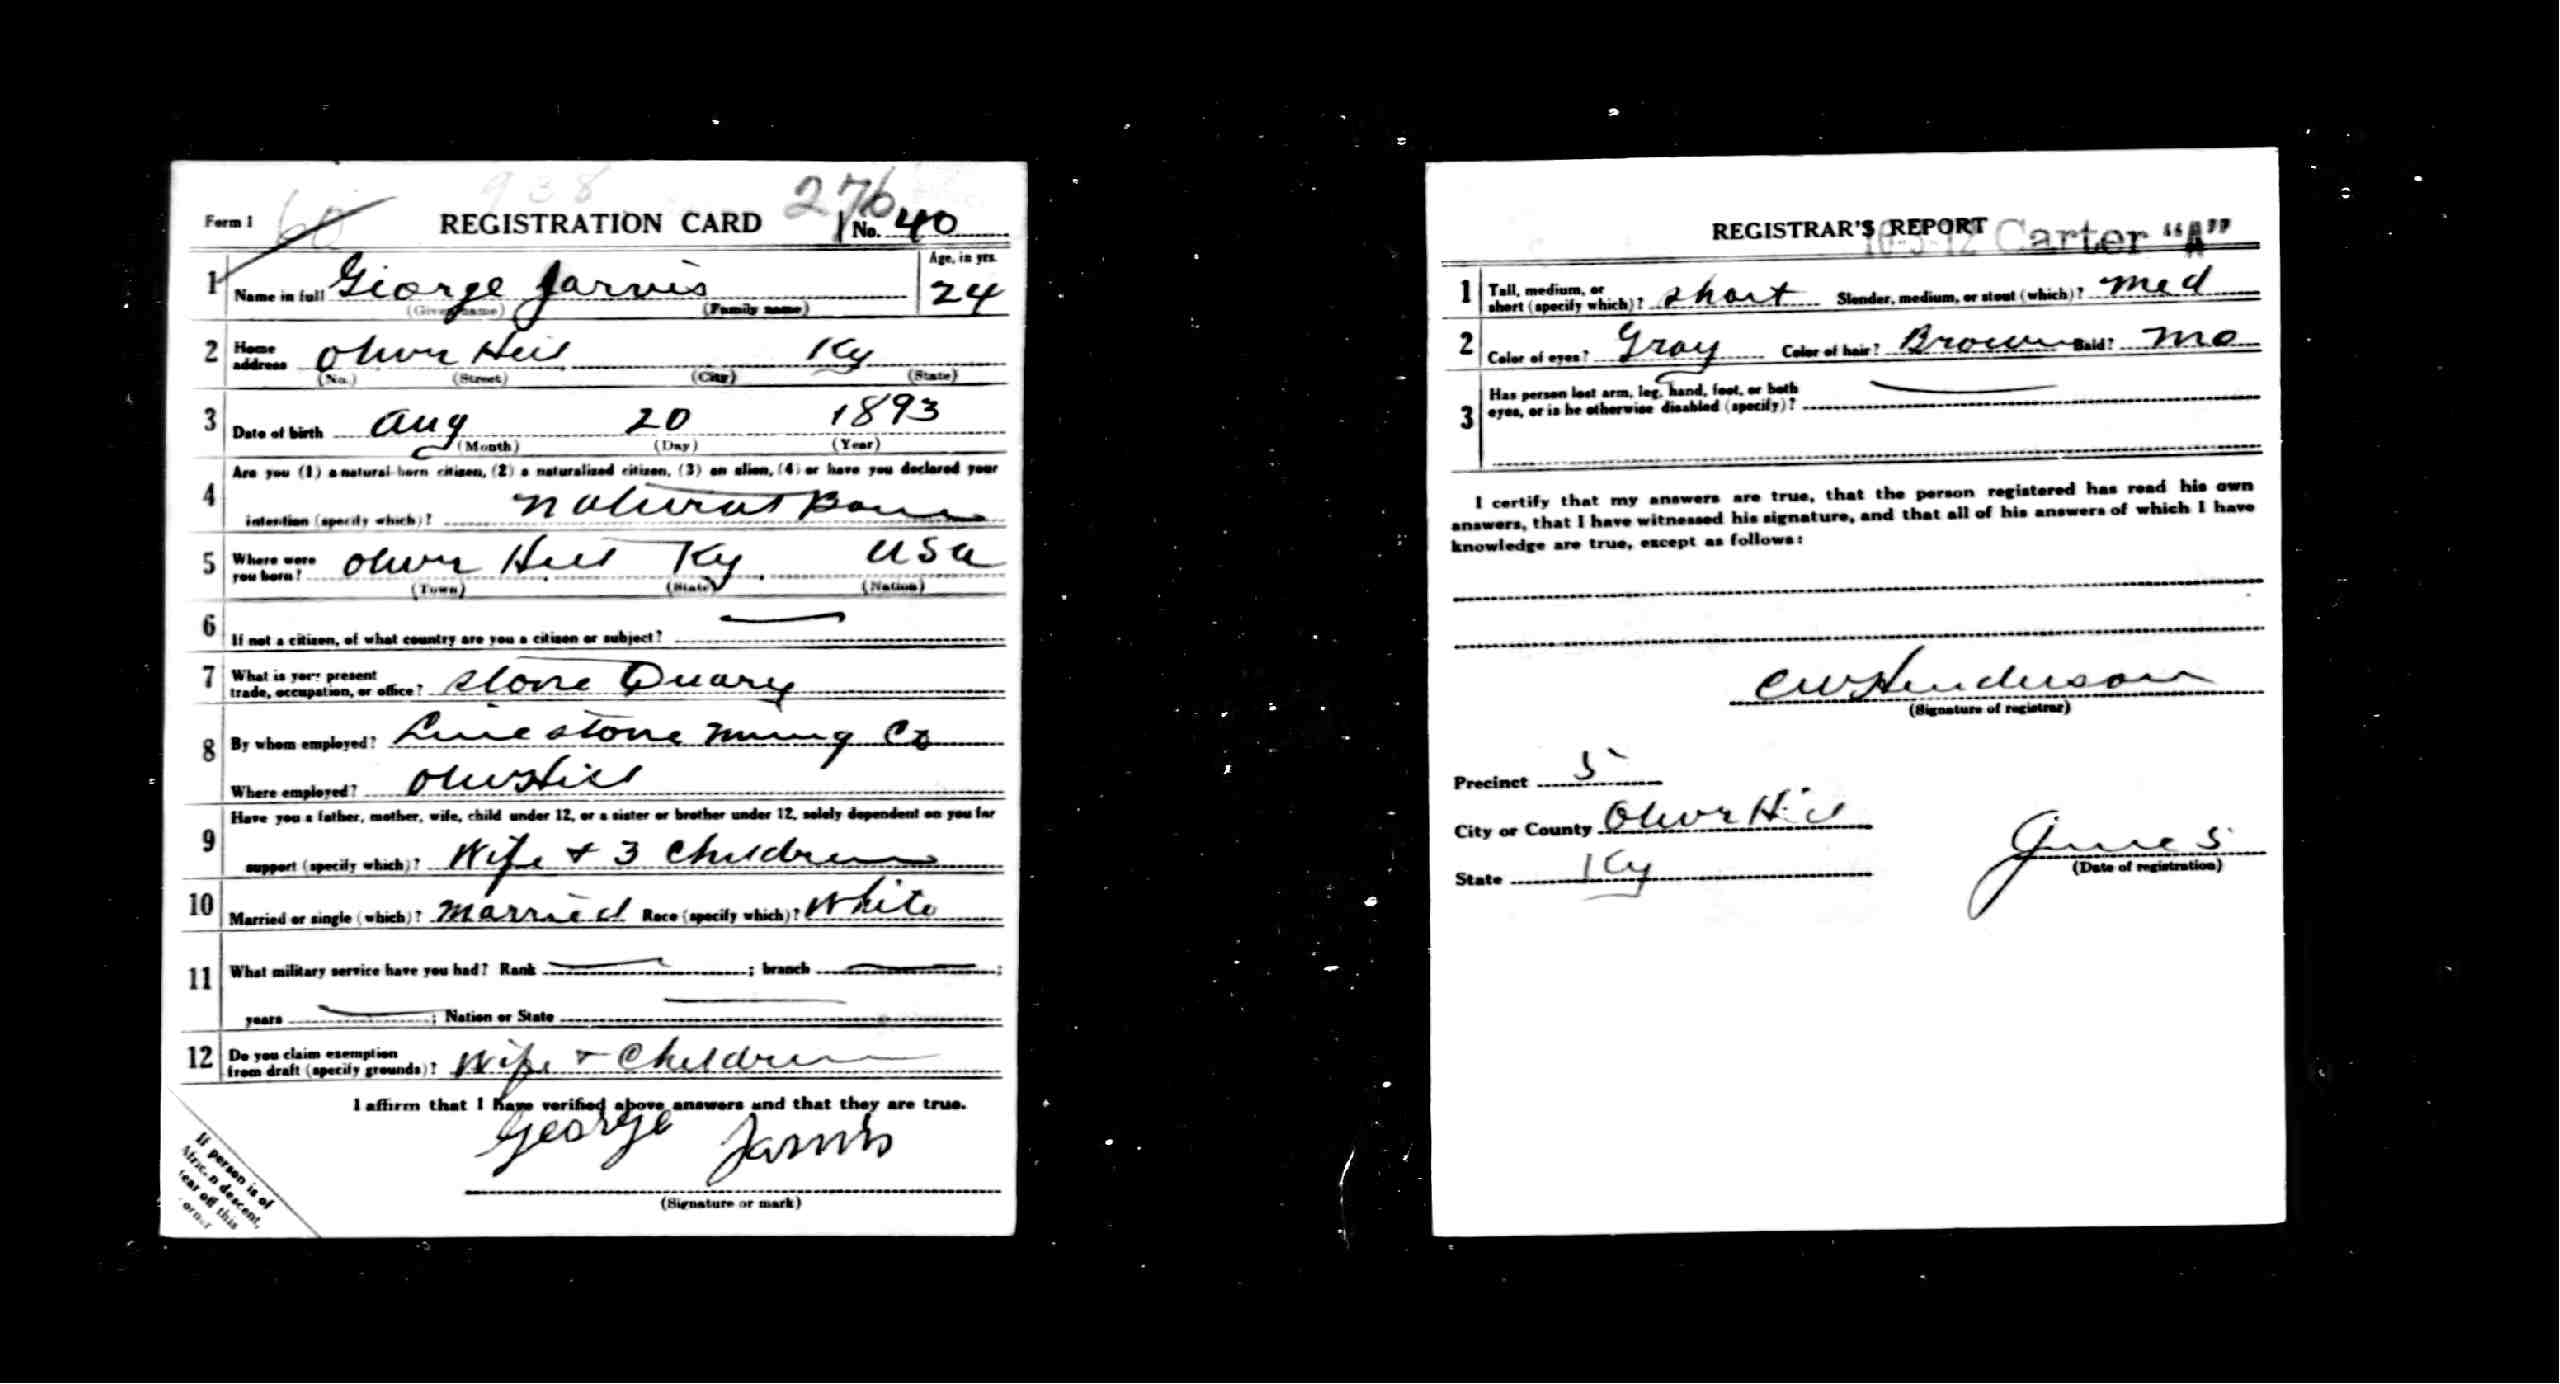 938
276
Form 1 60 REGISTRATION CARD No. 40
1 Name in full George Jarvis Age, in yrs. 24
(Given name) (Family name)
2 Home address Oliver Hill Ky
(No.) (Street) (City) (State)
3 Date of birth Aug 20 1893
(Month) (Day) (Year)
4 Are you (1) a natural-born citizen, (2) a naturalized citizen, (3) an alien, (4) or have you declared your
intention (specify which)? Natural Born
5 Where were you born? Oliver Hill Ky USA
(Town) (State) (Nation)
6 If not a citizen, of what country are you a citizen or subject?
7 What is your present trade, occupation, or office? Stone Quary
8 By whom employed? Limestone Mining Co
Where employed? Olive Hill
9 Have you a father, mother, wife, child under 12, or a sister or brother under 12, solely dependent on you for
support (specify which)? Wife & 3 Children
10 Married or single (which)? Married Race (specify which)? White
11 What military service have you had? Rank ; branch ;
years ; Nation or State
12 Do you claim exemption from draft (specify grounds)? Wife & Children
I affirm that I have verified above answers and that they are true.
George Jarvis
(Signature or mark)
If person is of
African descent,
tear off this
corner
REGISTRAR'S REPORT
Carter "A"
1 Tall, medium, or short (specify which)? Short Slender, medium, or stout (which)? Med
2 Color of eyes? Gray Color of hair? Brown Bald? No
3 Has person lost arm, leg, hand, foot, or both
eyes, or is he otherwise disabled (specify)?
I certify that my answers are true, that the person registered has read his own
answers, that I have witnessed his signature, and that all of his answers of which I have
knowledge are true, except as follows:
CW Henderson
(Signature of registrar)
Precinct 5
City or County Oliver Hill
State Ky
June 5
(Date of registration)